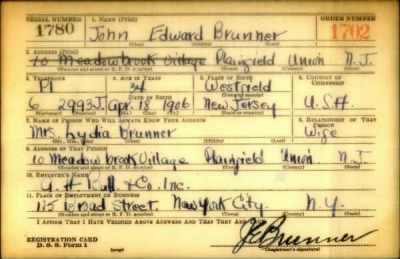 SERIAL NUMBER 1. NAME (Print) ORDER NUMBER
1780 John Edward Brunner 1702
(First) (Middle) (Last)
2. ADDRESS (Print)
10 Meadowbrook Village Plainfield Union N.J.
(Number and street or R. F. D. number) (Town) (County) (State)
3. TELEPHONE 4. AGE IN YEARS 5. PLACE OF BIRTH 6. COUNTRY OF CITIZENSHIP
Pl 34 Westfield
DATE OF BIRTH
6 2993J. Apr. 18 1906 New Jersey U.S.A.
7. NAME OF PERSON WHO WILL ALWAYS KNOW YOUR ADDRESS 8. RELATIONSHIP OF THAT PERSON
Mrs. Lydia Brunner Wife
9. ADDRESS OF THAT PERSON
10 Meadowbrook Village Plainfield Union N.J.
(Number and street or R. F. D. number) (Town) (County) (State)
10. EMPLOYER'S NAME
& Co. Inc.
11. PLACE OF EMPLOYMENT OR BUSINESS
115 Broad Street. New York City. N.Y.
(Number and street or R. F. D. number) (Town) (County) (State)
I AFFIRM THAT I HAVE VERIFIED ABOVE ANSWERS AND THAT THEY ARE TRUE.
REGISTRATION CARD
D. S. S. Form 1 (over) J E Brunner
(Registrant's signature)